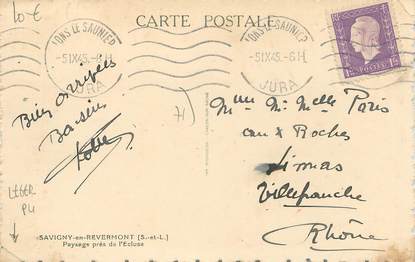 10 €
CARTE POSTALE
LONS LE SAUNIER
-5 IX 45.-6 H
JURA
LONS LE SAUNIER
-5 IX 45.-6 H
JURA
POSTES
Bien arrivées
Baisers
H)
Mme Mr Melle Paris
aux Roches
Limas
Villefranche
Rhône
LEGER
PLI
SAVIGNY-en-REVERMONT (S.-et-L.)
Paysage près de l'Ecluse